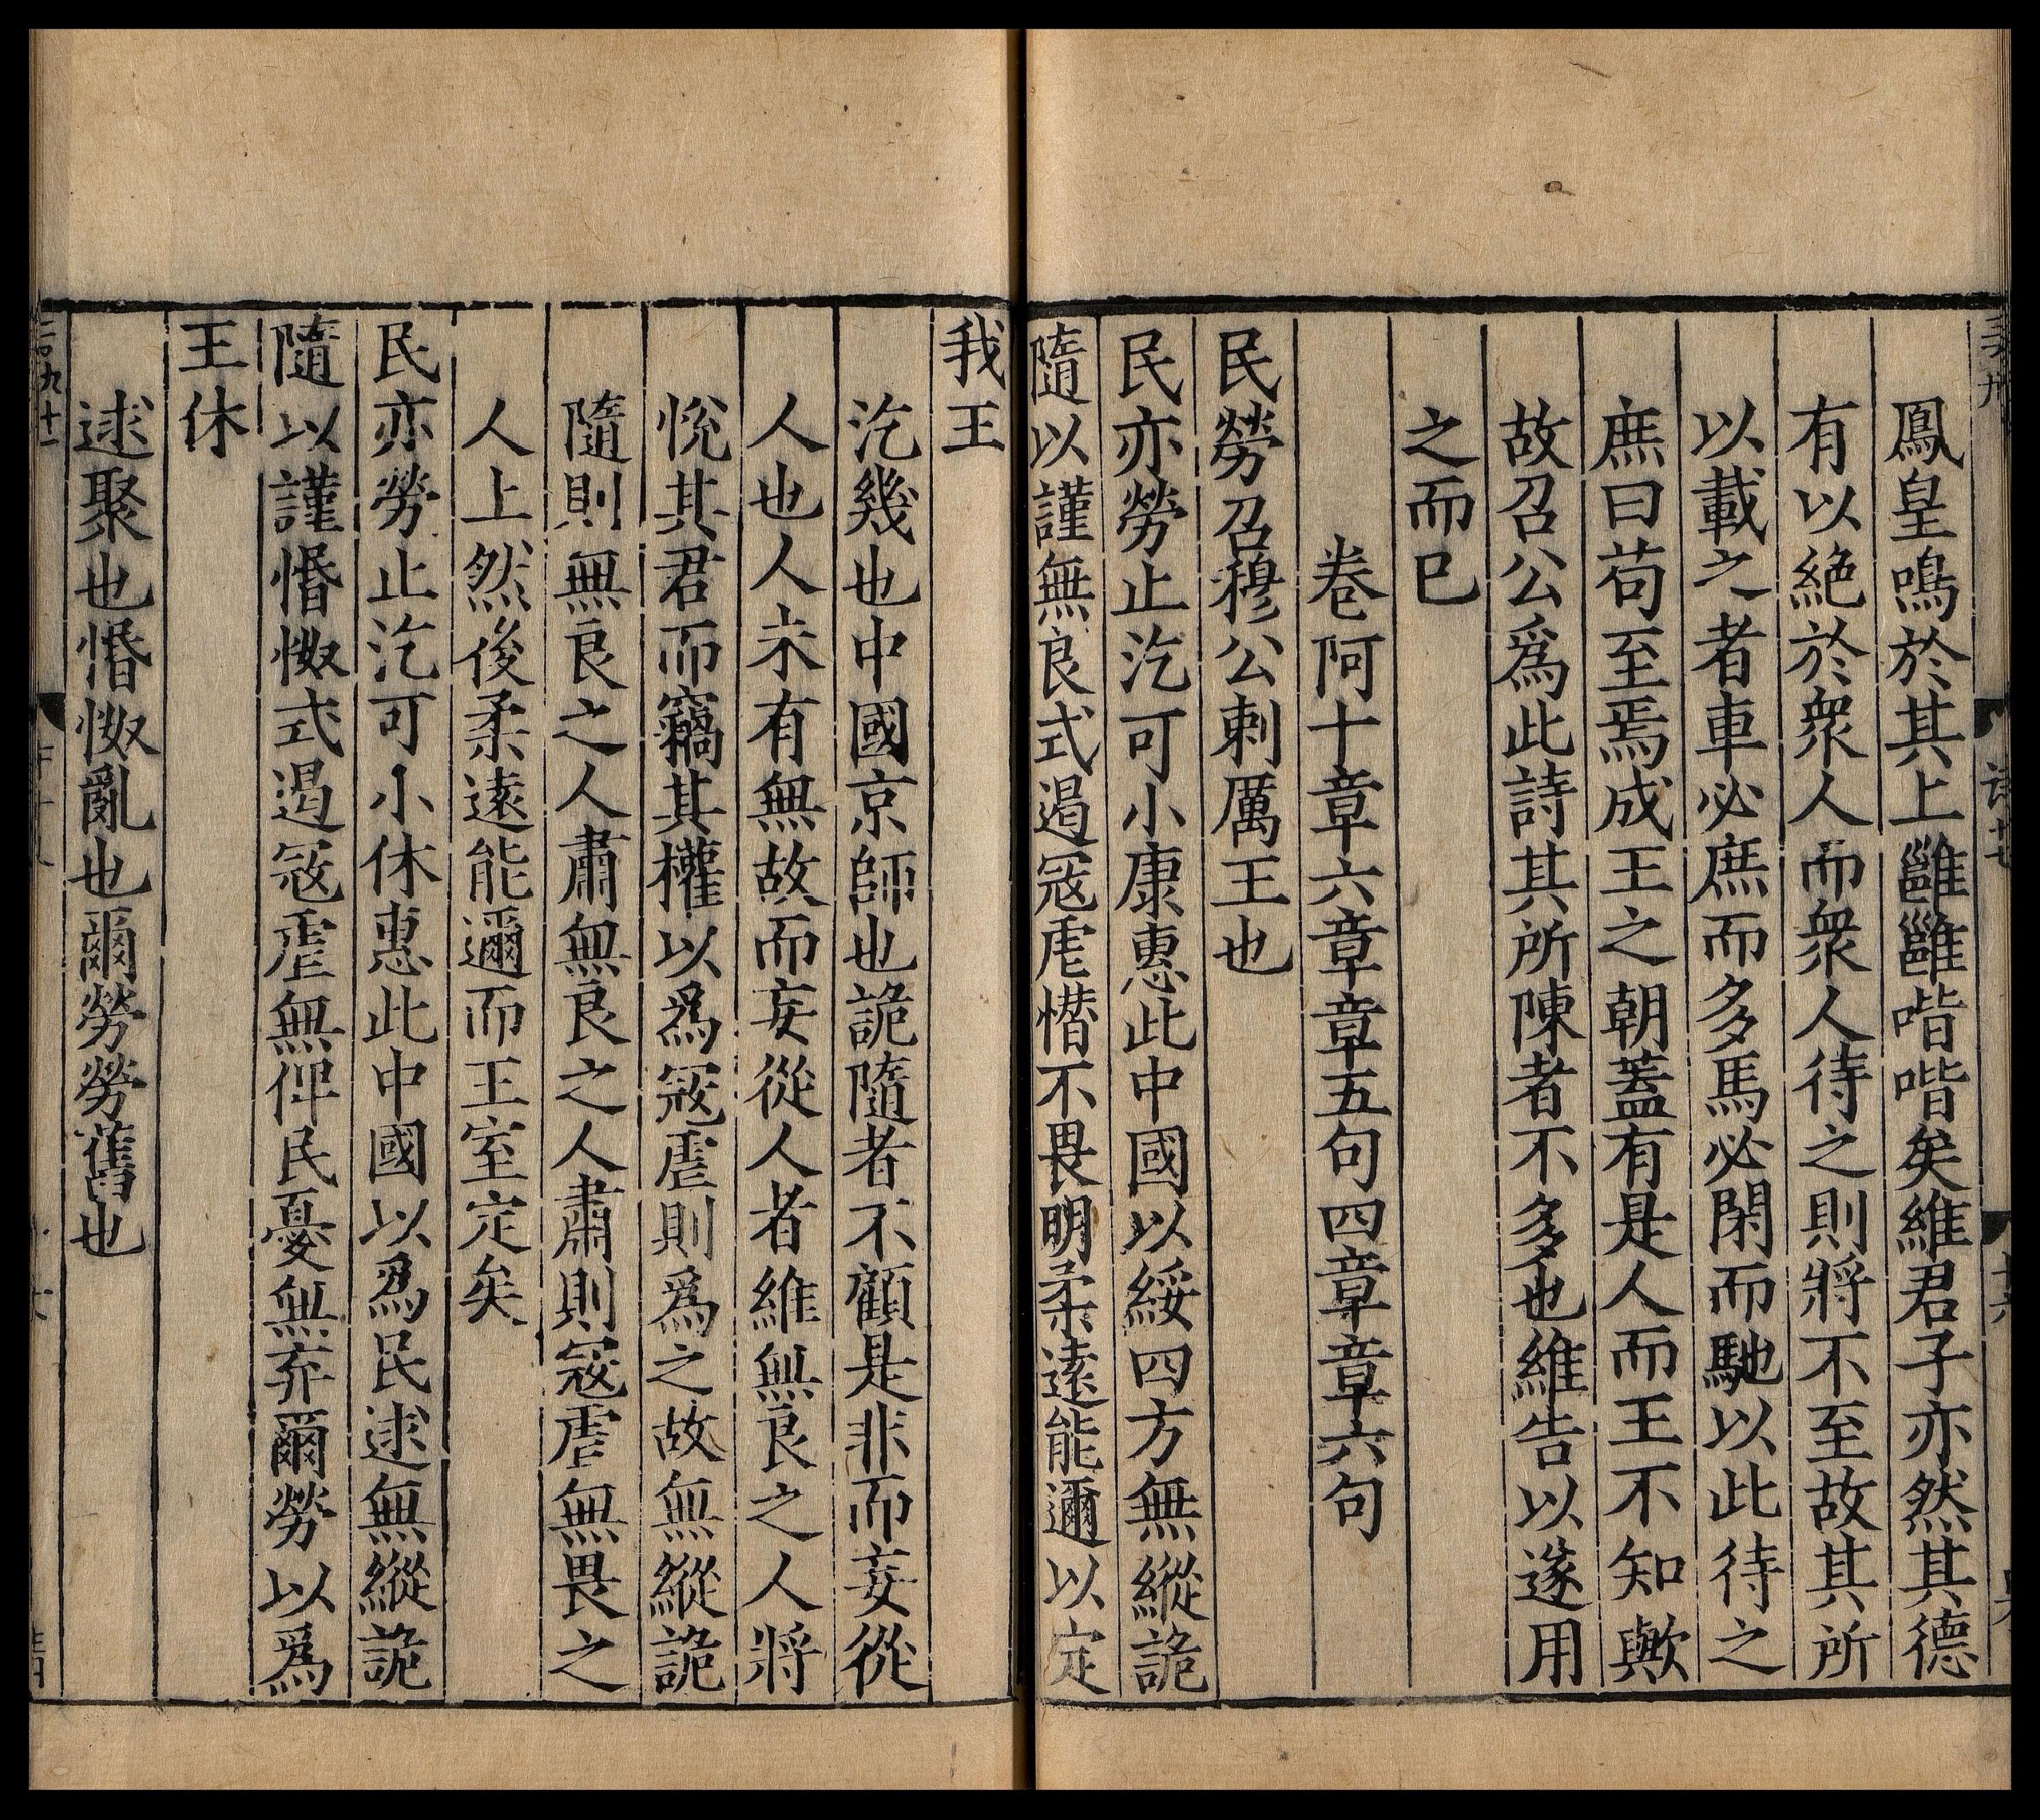 鳳皇鳴於其上雝雝喈喈矣維君子亦然其德
有以絶於衆人而衆人待之則將不至故其所
以載之者車必庶而多馬必閑而馳以此待之
庶曰苟至焉成王之朝蓋有是人而王不知歟
故召公爲此詩其所陳者不多也維告以遂用
之而已
卷阿十章六章章五句四章章六句
民勞召穆公刺厲王也
民亦勞止汔可小康惠此中國以綏四方無縱詭
隨以謹無良式遏寇虐憯不畏明柔遠能邇以定
我王
汔幾也中國京師也詭隨者不顧是非而妄從
人也人未有無故而妄從人者維無良之人將
悅其君而竊其權以爲寇虐則爲之故無縱詭
隨則無良之人肅無良之人肅則寇虐無畏之
人上然後柔遠能邇而王室定矣
民亦勞止汔可小休惠此中國以爲民逑無縱詭
隨以謹惛怓式遏寇虐無俾民憂無弃爾勞以爲
王休
逑聚也惛怓亂也爾勞勞舊也